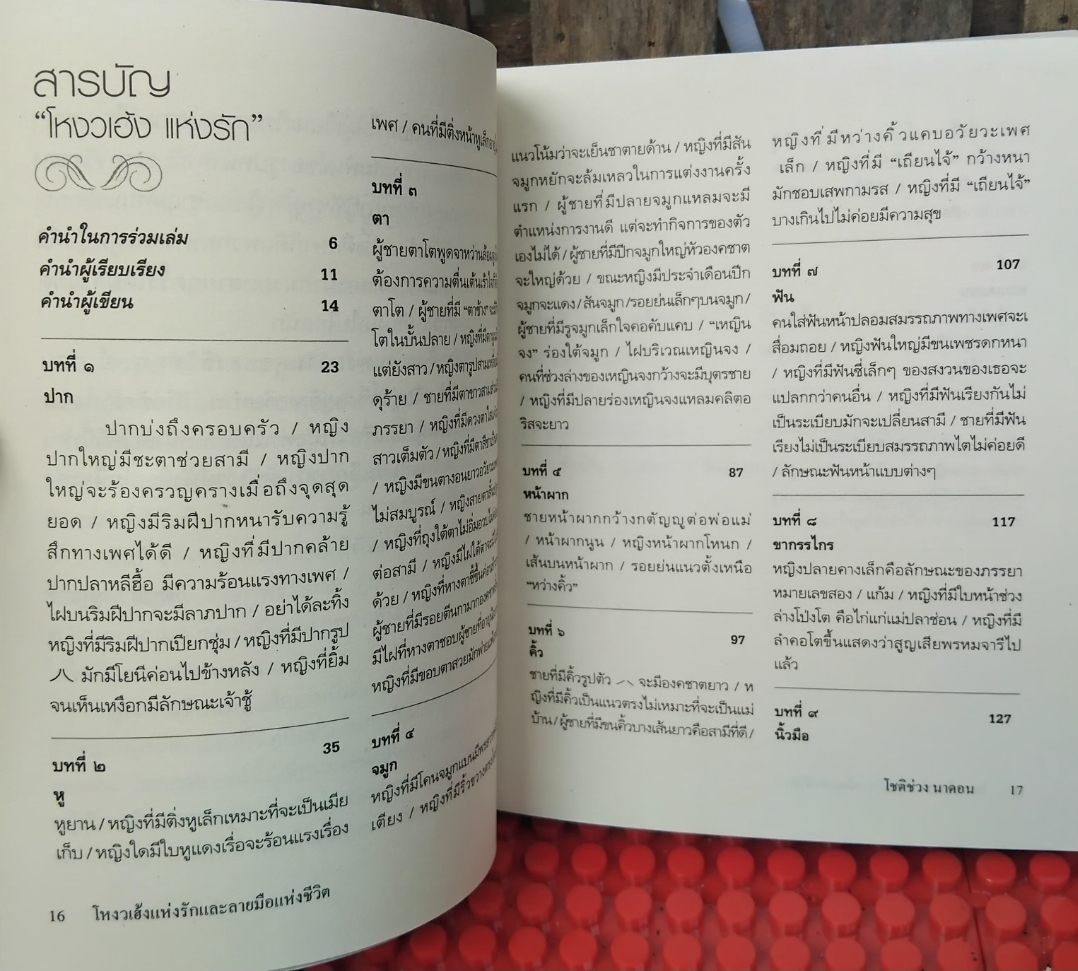 สารบัญ
“โหงวเฮ้ง แห่งรัก”
คำนำในการร่วมเล่ม 6
คำนำผู้เรียบเรียง 11
คำนำผู้เขียน 14
บทที่ ๑ 23
ปาก
ปากบ่งถึงครอบครัว / หญิง
ปากใหญ่มีชะตาช่วยสามี / หญิงปาก
ใหญ่จะร้องครวญครางเมื่อถึงจุดสุด
ยอด / หญิงมีริมฝีปากหนารับความรู้
สึกทางเพศได้ดี / หญิงที่มีปากคล้าย
ปากปลาหลีฮื้อ มีความร้อนแรงทางเพศ /
ไฝบนริมฝีปากจะมีลาภปาก / อย่าได้ละทิ้ง
หญิงที่มีริมฝีปากเปียกชุ่ม / หญิงที่มีปากรูป
มักมีโยนีค่อนไปข้างหลัง / หญิงที่ยิ้ม
จนเห็นเหงือกมีลักษณะเจ้าชู้
บทที่ ๒ 35
หู
หูยาน / หญิงที่มีติ่งหูเล็กเหมาะที่จะเป็นเมีย
เก็บ / หญิงใดมีใบหูแดงเรื่อจะร้อนแรงเรื่อง
16 โหงวเฮ้งแห่งรักและลายมือแห่งชีวิต
เพศ / คนที่มีติ่งหน้าหูเล็ก
บทที่ ๓
ตา
ผู้ชายตาโตพูดจาหว่านล้อม
ต้องการความตื่นเต้นเร้าใจ
ตาโต / ผู้ชายที่มี “ตาช้าง”
โตในบั้นปลาย / หญิงที่มี
แต่ยังสาว / หญิงตารูปสามเหลี่ยม
ดุร้าย / ชายที่มีตาขาว
ภรรยา / หญิงที่มีดวงตา
สาวเต็มตัว / หญิงที่มีตา
/ หญิงมีขนตางอนยาว
ไม่สมบูรณ์ / หญิงสายตาสั้น
/ หญิงที่ถุงใต้ตาไม่อิ่มอวบ
ต่อสามี / หญิงมีไฝใต้ตา
ด้วย / หญิงที่หางตาชี้ขึ้น
ผู้ชายที่มีรอยตีนกามาก
มีไฝที่หางตาชอบผู้ชาย
หญิงที่มีขอบตาสวยมัก
บทที่ ๔
จมูก
หญิงที่มีโคนจมูกแบน
เตียง / หญิงที่มีริ้วขวาง
แนวโน้มว่าจะเย็นชาตายด้าน / หญิงที่มีสัน
จมูกหยักจะล้มเหลวในการแต่งงานครั้ง
แรก / ผู้ชายที่มีปลายจมูกแหลมจะมี
ตำแหน่งการงานดี แต่จะทำกิจการของตัว
เองไม่ได้ / ผู้ชายที่มีปีกจมูกใหญ่หัวองคชาต
จะใหญ่ด้วย / ขณะหญิงมีประจำเดือนปีก
จมูกจะแดง / สันจมูก / รอยย่นเล็กๆบนจมูก /
ผู้ชายที่มีรูจมูกเล็กใจคอคับแคบ / “เหญิน
จง” ร่องใต้จมูก / ไฝบริเวณเหญินจง /
คนที่ช่วงล่างของเหญินจงกว้างจะมีบุตรชาย
/ หญิงที่มีปลายร่องเหญินจงแหลมคลิตอ
ริสจะยาว
บทที่ ๕ 87
หน้าผาก
ชายหน้าผากกว้างกตัญญูต่อพ่อแม่
/ หน้าผากนูน / หญิงหน้าผากโหนก /
เส้นบนหน้าผาก / รอยย่นแนวตั้งเหนือ
“หว่างคิ้ว”
บทที่ ๖ 97
คิ้ว
ชายที่มีคิ้วรูปตัว จะมีองคชาตยาว / ห
ญิงที่มีคิ้วเป็นแนวตรงไม่เหมาะที่จะเป็นแม่
บ้าน / ผู้ชายที่มีขนคิ้วบางเส้นยาวคือสามีที่ดี /
หญิงที่มีหว่างคิ้วแคบอวัยวะเพศ
เล็ก / หญิงที่มี “เถียนไจ้” กว้างหนา
มักชอบเสพกามรส / หญิงที่มี “เถียนไจ้”
บางเกินไปไม่ค่อยมีความสุข
บทที่ ๗ 107
ฟัน
คนใส่ฟันหน้าปลอมสมรรถภาพทางเพศจะเ
สื่อมถอย / หญิงฟันใหญ่มีขนเพชรดกหนา
/ หญิงที่มีฟันซี่เล็กๆ ของสงวนของเธอจะ
แปลกกว่าคนอื่น / หญิงที่มีฟันเรียงกันไม่
เป็นระเบียบมักจะเปลี่ยนสามี / ชายที่มีฟัน
เรียงไม่เป็นระเบียบสมรรถภาพไตไม่ค่อยดี
/ ลักษณะฟันหน้าแบบต่างๆ
บทที่ ๘ 117
ขากรรไกร
หญิงปลายคางเล็กคือลักษณะของภรรยา
หมายเลขสอง / แก้ม / หญิงที่มีใบหน้าช่วง
ล่างโป่งโต คือไก่แก่แม่ปลาช่อน / หญิงที่มี
ลำคอโตขึ้นแสดงว่าสูญเสียพรหมจารีไป
แล้ว
บทที่ ๙ 127
นิ้วมือ
โชติช่วง นาดอน 17